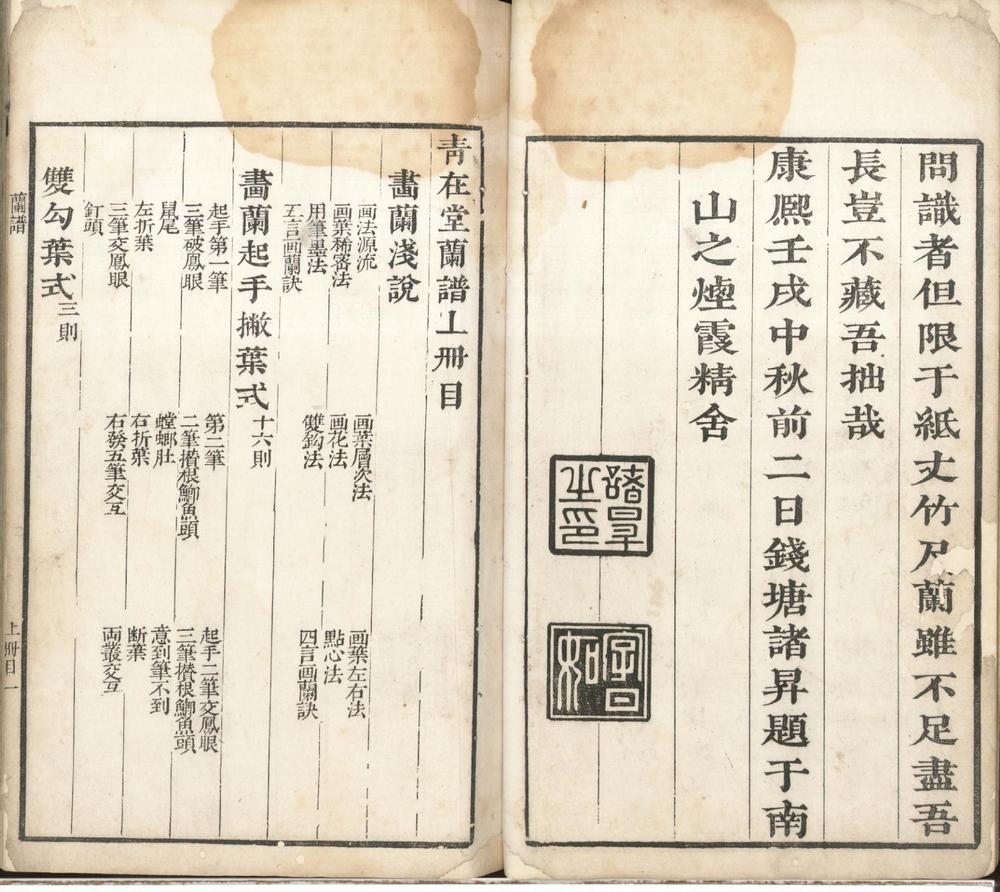 問識者但限于紙丈竹尺蘭雖不足盡吾
長豈不藏吾拙哉
康熈壬戌中秋前二日錢塘諸昇題于南
山之煙霞精舍
諸昇之印
字曰如
青在堂蘭譜上冊目
畵蘭淺說
画法源流
画葉層次法
画葉左右法
画葉稀密法
画花法
點心法
用筆墨法
雙鈎法
四言画蘭訣
五言画蘭訣
畵蘭起手撇葉式十六則
起手第一筆
第二筆
起手二筆交鳳眼
三筆破鳳眼
二筆攢根鯽魚頭
三筆攢根鯽魚頭
鼠尾
螳螂肚
意到筆不到
左折葉
右折葉
断葉
三筆交鳳眼
右發五筆交互
両叢交互
釘頭
雙勾葉式三則
蘭譜
上冊目
一